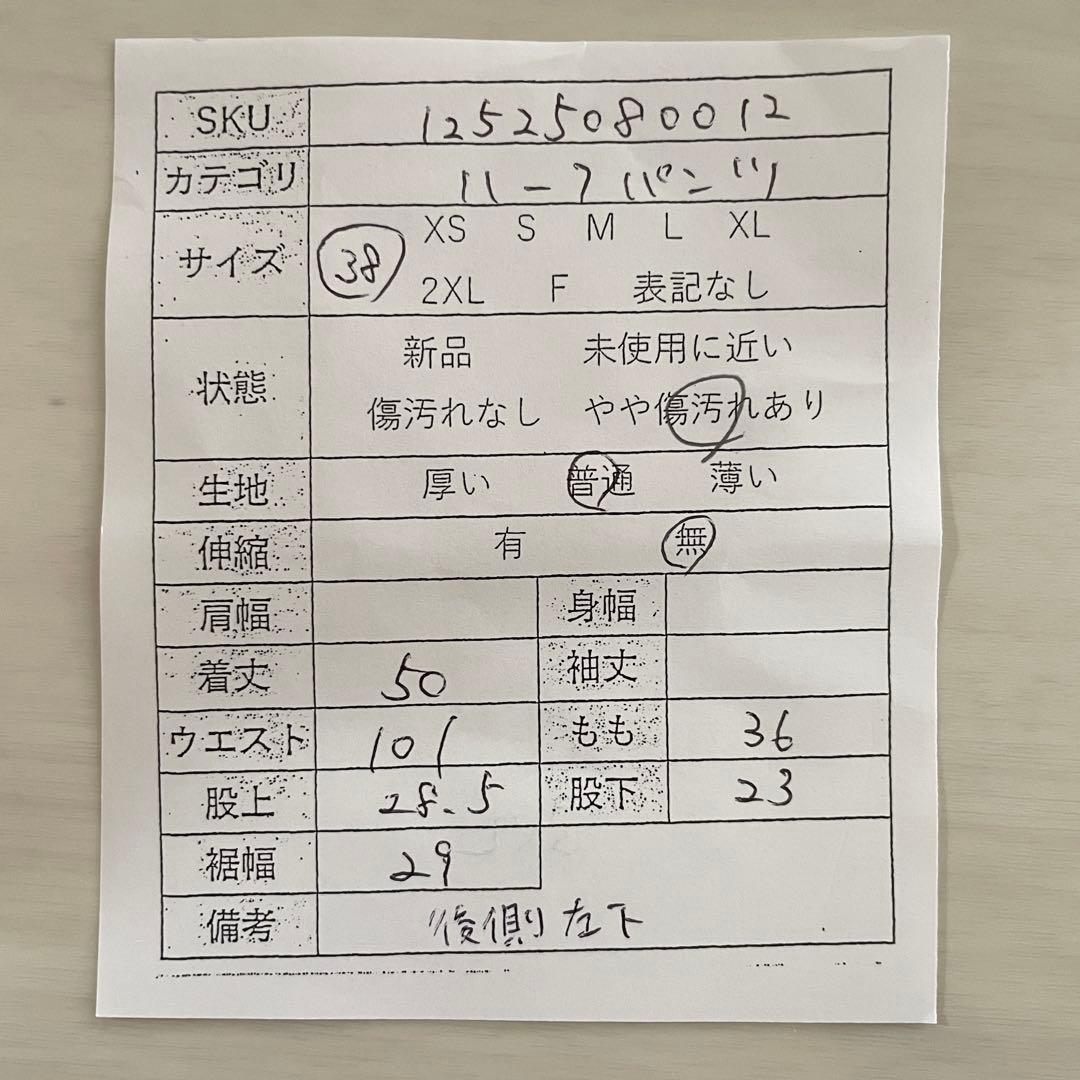 SKU 12525080012
カテゴリ ハーフパンツ
サイズ 38 XS S M L XL
2XL F 表記なし
状態 新品 未使用に近い
傷汚れなし やや傷汚れあり
生地 厚い 普通 薄い
伸縮 有 無
肩幅 身幅
着丈 50 袖丈
ウエスト 101 もも 36
股上 28.5 股下 23
裾幅 29
備考 後側左下